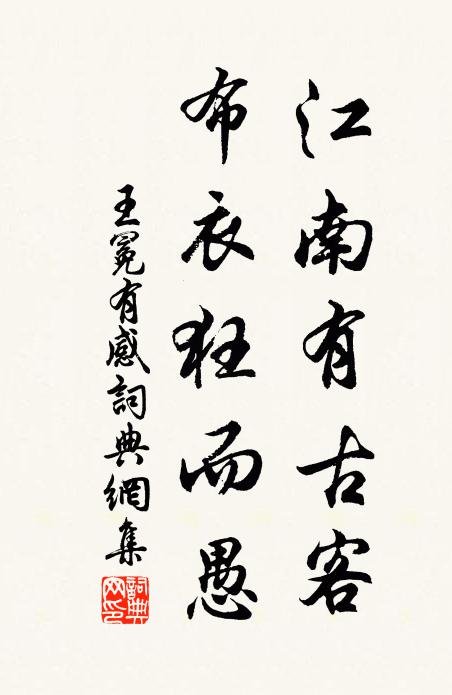 江南有古客
布衣狂而愚
王冕有感詞典網集
詞典
网印